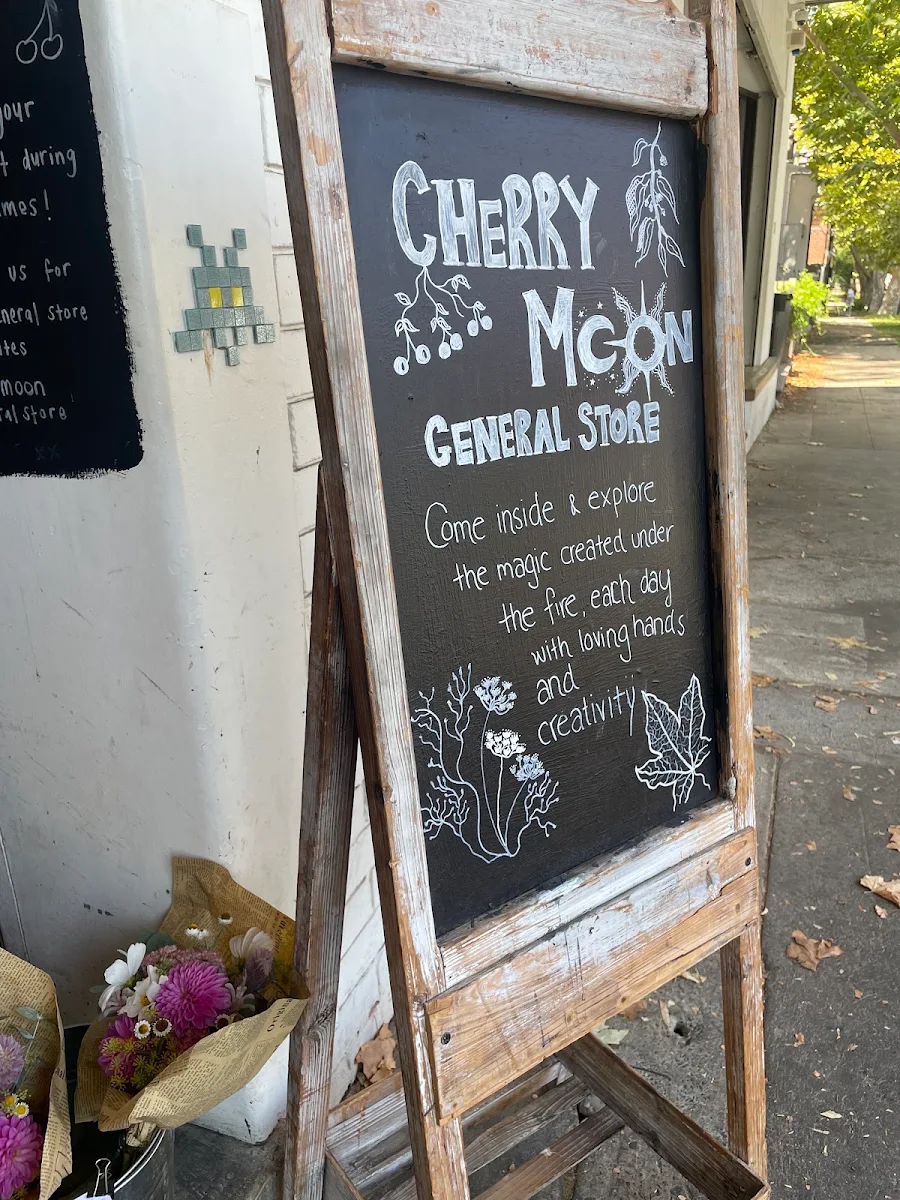 our
during
mes!
us for
neral store
ites
moon
ral store
xx
CHERRY
MOON
GENERAL STORE
Come inside & explore
the magic created under
the fire, each day
with loving hands
and
creativity